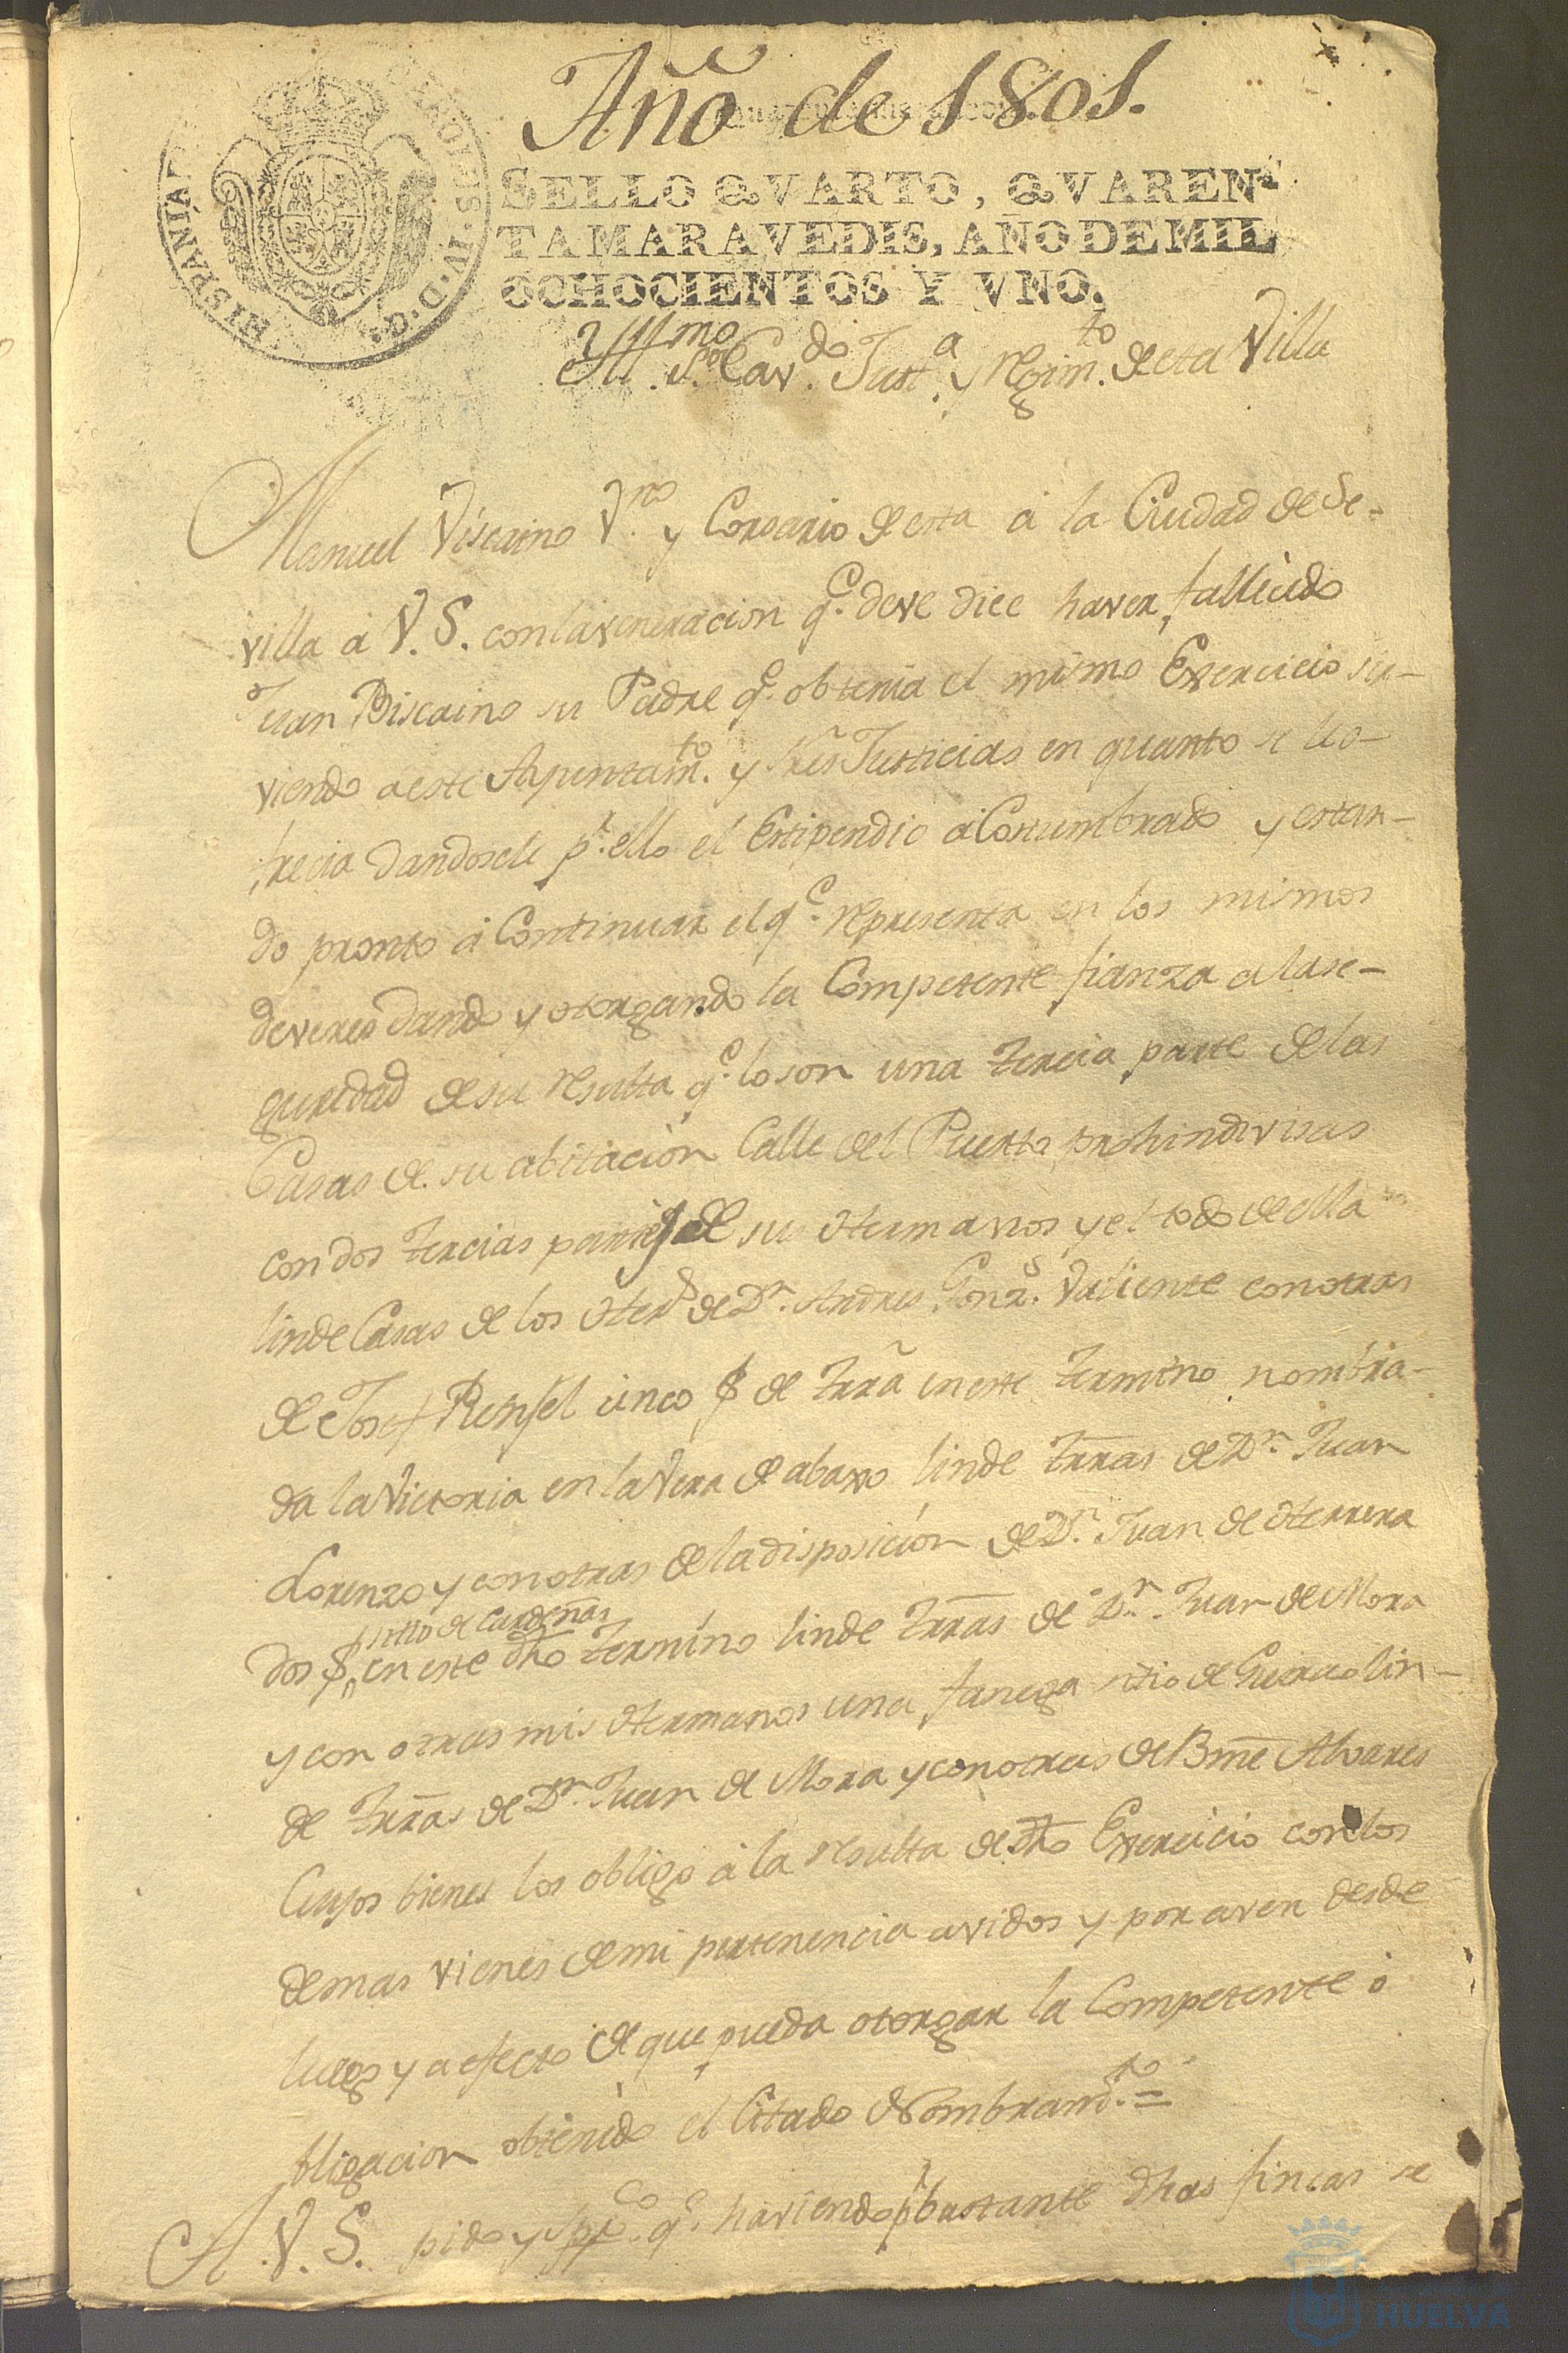 Año de 1801.
HISPANIAR
D. G.
SELLO QVARTO, QVAREN-
TA MARAVEDIS, AÑO DE MIL
OCHOCIENTOS Y VNO.
Yll.mo S.or Cav.do Just.a y Regim.to de eta Villa
Manuel Viscaino V.no y Corsario de esta á la Ciudad de Se-
villa á V. S. con la veneracion q.e deve dice haver fallecido
Juan Biscaino su Padre q.e obtenia el mismo Exercicio sir-
viendo a este Ayuntam.to y Justicias en quanto se les o-
frecia dandosele p.r ello el Estipendio acostumbrado y estan-
do pronto á Continuar el q.e representa en los mismos
deveres dando y otorgando la Competente fianza a la se-
guridad de su resulta q.e lo son una tercia parte de las
Casas de su abitacion Calle del Puerto prohindivisas
con dos tercias partes de sus Hermanos y el todo de ella
linde Casas de los Her.s de D.n Andres Gonz.s Valiente con otras
de Josef Rengel cinco f de trrã en este termino nombra-
da la Victoria en la Vera de abaxo linde trr̃as de D.n Juan
Lorenzo y con otras de la disposicion de D.n Juan de Herrera
sitio de Cardeñas
dos f en este dho termino linde trr̃as de D.n Juan de Mora
y con otras mis Hermanos una fanega sitio de lin-
de trr̃as de D.n Juan de Mora y con otras de Bm̃e Alvares
Cuyos bienes los obligo á la resulta de dho Exercicio con los
demas vienes de mi pertenencia avidos y por aver desde
luego y a efecto de que pueda otorgar la Competente o
bligacion obtenido el Citado Nombram.to =
A V. S. pido y sup.co q.e haviendo p.r bastante dhas fincas se
HUELVA